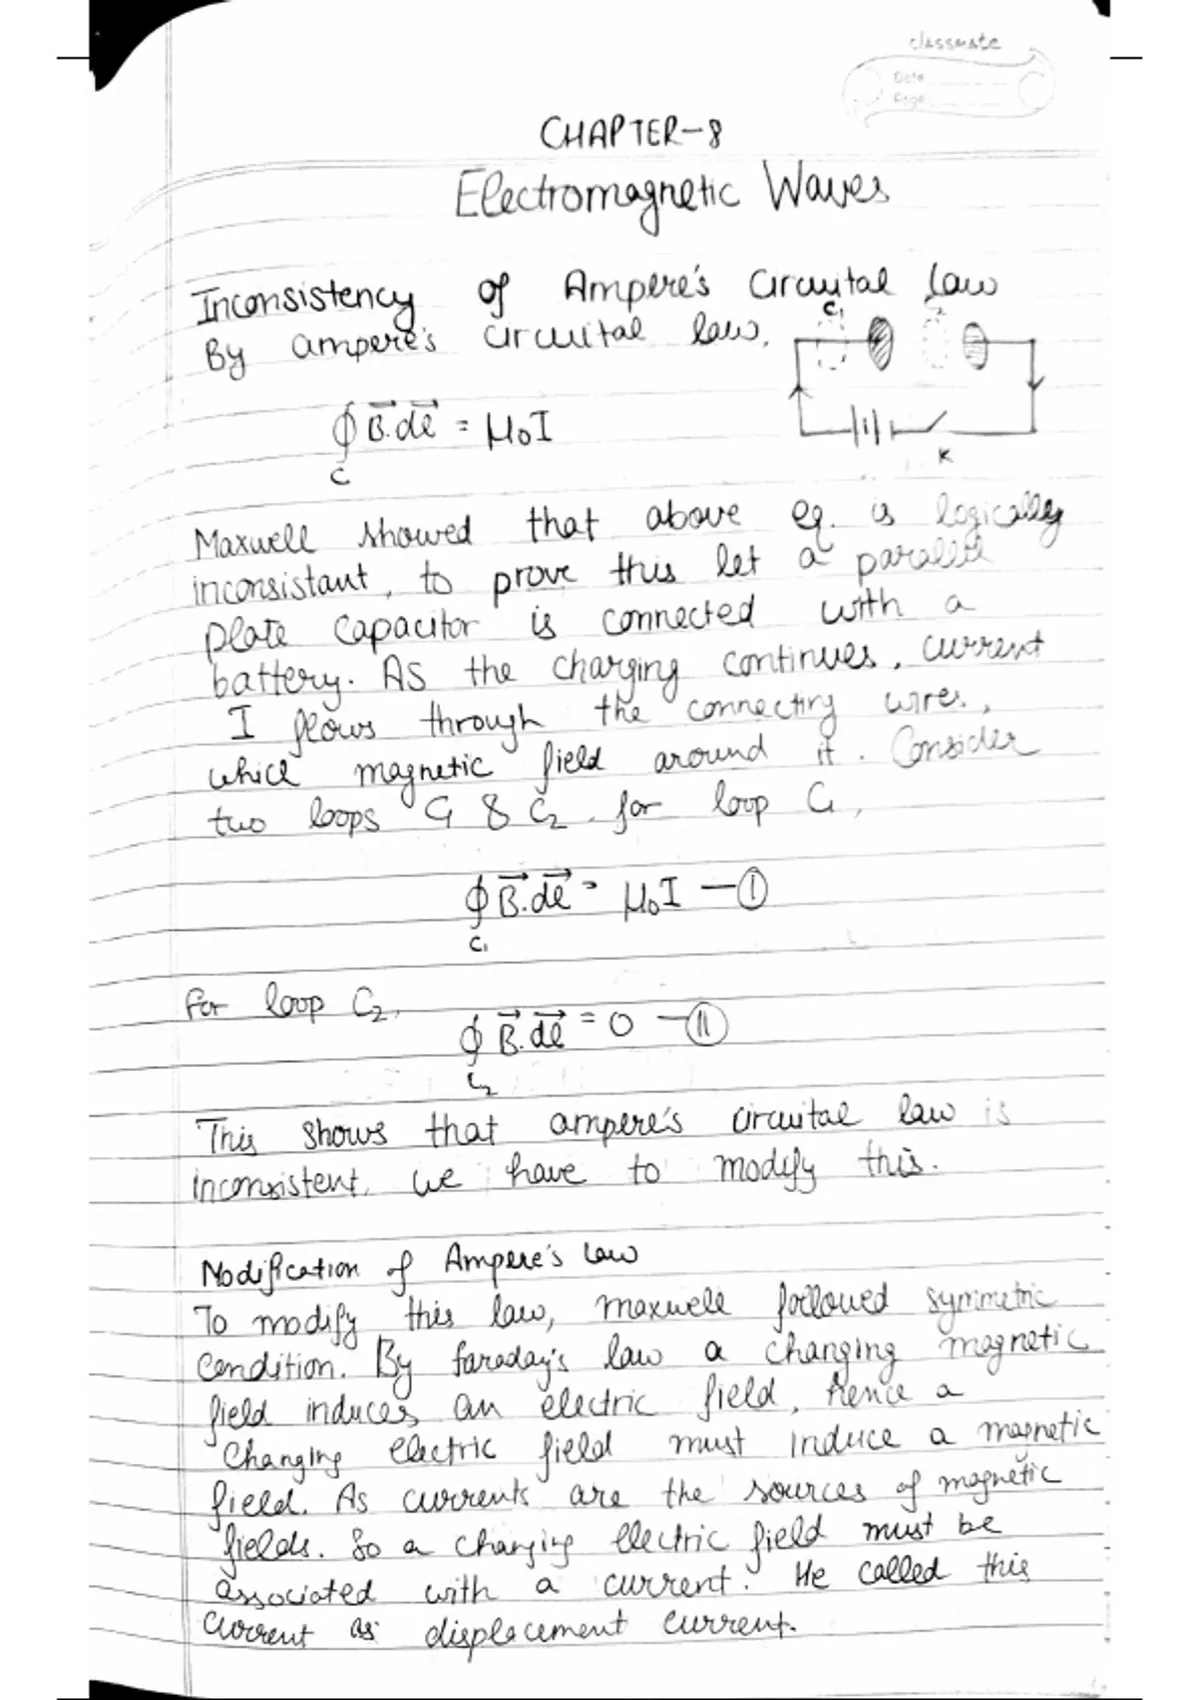 classmate
Date
Page
CHAPTER-8
Electromagnetic Waves
Inconsistency of Ampere's Circuital Law
By ampere's circuital law,
C₁
∮ B⃗.dl⃗ = μ₀I
C
K
Maxwell showed that above eq. is logically
inconsistant, to prove this let a parallel
plate capacitor is connected with a
battery. As the charging continues, current
I flows through the connecting wires,
which magnetic field around it. Consider
two loops C₁ & C₂. for loop C₁,
∮ B⃗.dl⃗ = μ₀I —①
C₁
For loop C₂,
∮ B⃗.dl⃗ = 0 —⑪
C₂
This shows that ampere's circuital law is
inconsistent. we have to modify this.
Modification of Ampere's Law
To modify this law, maxwell followed symmetric
condition. By faraday's law a changing magnetic
field induces an electric field, hence a
Changing electric field must induce a magnetic
field. As currents are the sources of magnetic
fields. So a changing electric field must be
associated with a current. He called this
current as displacement current.